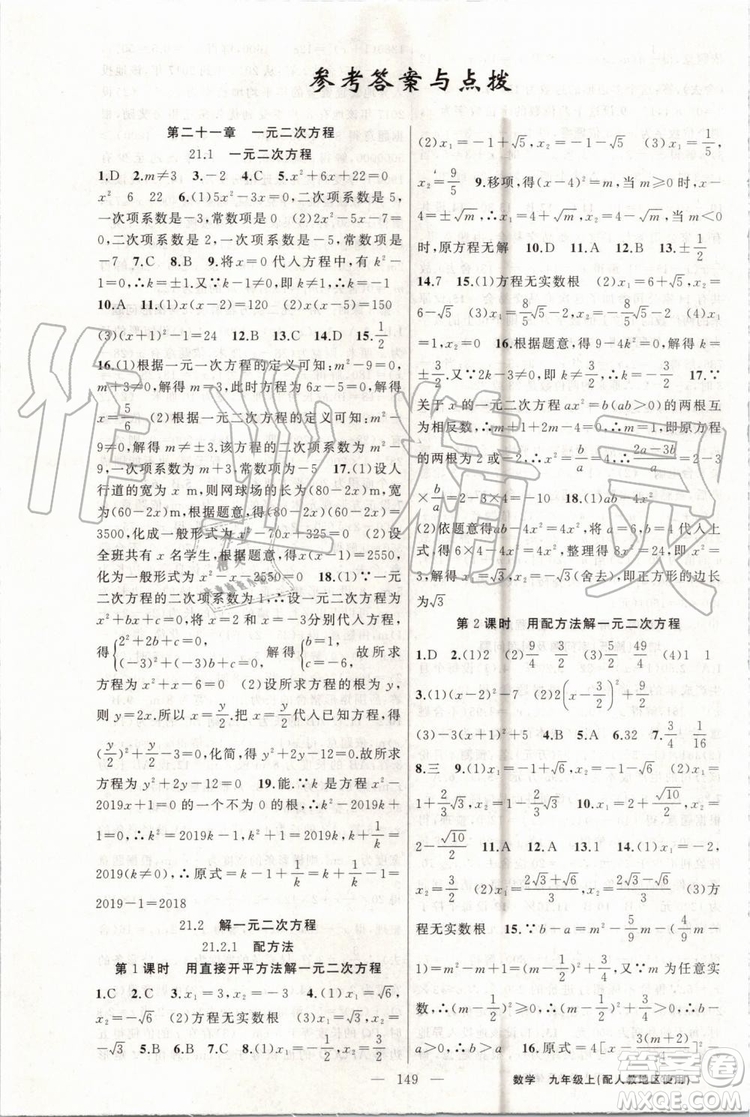 参考答案与点拨
第二十一章 一元二次方程
21.1 一元二次方程
1.D 2.m≠3 3.-2 4.C 5.x²+6x+22=0
x² 6 22 6.(1)5x²-3x=0,二次项系数是5,
一次项系数是-3,常数项是0 (2)2x²-5x-7=0,
二次项系数是2,一次项系数是-5,常数项是
-7 7.C 8.B 9.将x=0代入方程x²+kx+k²-
1=0,得k²-1=0,∴k=±1.又∵k-1≠0,即k≠1,∴k=-1
10.A 11.(1)x(x-2)=120 (2)x(x-5)=150
(3)(x+1)²-1=24 12.B 13.C 14.D 15.1/2
16.(1)根据一元二次方程的定义可知:m²-9=0,
m+3≠0,解得m=3,此时方程为6x-5=0,解得
x=5/6 (2)根据一元二次方程的定义可知:m²-
9≠0,解得m≠±3,该方程的二次项系数为m²-9,
一次项系数为m+3,常数项为-5 17.(1)设人
行道的宽为x m,则网球场的长为(80-2x)m,
宽为(60-2x)m.依题意,得(80-2x)(60-2x)=
3500,化成一般形式为x²-70x+325=0 (2)设
全班共有x名学生,根据题意,得x(x-1)=2550,
化为一般形式为x²-x-2550=0 18.(1)∵一元
二次方程的二次项系数为1,∴设该方程为
x²+bx+c=0.将x=2和x=-3分别代入方程,
得{2²+2b+c=0,(-3)²-3b+c=0, 解得{b=1,c=-6, 故所求
方程为x²+x-6=0 (2)设所求方程的根为y,
则y=2x.所以x=y/2.把x=y/2代入已知方程,得
(y/2)²+y/2-3=0,化简,得y²+2y-12=0.故所求
方程为y²+2y-12=0 19.能.∵k是方程x²-
2019x+1=0的一个不为0的根,∴k²-2019k+
1=0,∴k²=2019k-1,k²+1=2019k,k+1/k=
2019(k≠0),∴原式=k²-2018k+1/k=k+1/k-1=
2019-1=2018
21.2 解一元二次方程
21.2.1 配方法
第1课时 用直接开平方法解一元二次方程
1.C 2.C 3.x₁=3,x₂=-3 4.(1)x₁=√6,
x₂=-√6 (2)方程无实数根 (3)x₁=√3,x₂=
-√3 5.D 6.B 7.-3 8.(1)x₁=-1,x₂=-9
(2)x₁=-1+√5,x₂=-1-√5 (3)x₁=1/5,
x₂=9/5 9.移项,得(x-4)²=m.当m≥0时,x-
4=±√m,∴x₁=4+√m,x₂=4-√m;当m<0
时,原方程无解 10.D 11.A 12.B 13.±1/2
14.7 15.(1)方程无实数根 (2)x₁=6+√5,x₂
=6-√5 (3)x₁=8/5√5,x₂=-8/5√5 (4)x₁=
0,x₂=4 16.根据题意,得9-4k²=0,解得k=
±3/2.又∵2k-3≠0,∴k≠3/2,∴k=-3/2 17.∵
关于x的一元二次方程ax²=b(ab>0)的两根互
为相反数,∴m+1+2m-4=0,∴m=1,即原方程
的两根为2或-2,∴x²=b/a=4,∴原式=(2a-3b)/a
×b/a=2-3×b/a=2-3×4=-10 18.(1)ab-4x²
(2)依题意得ab-4x²=4x²,将a=6,b=4代入上
式,得6×4-4x²=4x²,整理得x²=3,
解得x₁=√3,x₂=-√3(舍去),即正方形的边长
为√3
第2课时 用配方法解一元二次方程
1.D 2.(1)2 (2)9/4 3/2 (3)5/2 49/4 (4)1 1
3.(1)(x-2)²-1 (2)2(x-3/2)²-9/2
(3)-3(x+1)²+5 4.A 5.A 6.32 7.3/4 1/16
8.三 9.(1)x₁=-1+√6,x₂=-1-√6 (2)x₁=
1+2/3√3,x₂=1-2/3√3 (3)x₁=2+√10/2,x₂=
2-√10/2 10.A 11.A 12.C 13.7 14.(1)x₁=
9,x₂=-2 (2)x₁=(2√3+√6)/3,x₂=(2√3-√6)/3 (3)方
程无实数根 15.∵a-b=m²-(m-1/4)=m²-
m+1/4=(m-1/2)²,且m≠1/2,m为任意实
数,∴(m-1/2)²>0,∴a-b>0,∴a>b.又∵
a>0,∴|a|>|b| 16.原式=4[x-3(m+2)/
149
数学 九年级上(配人教地区使用)
作业精灵